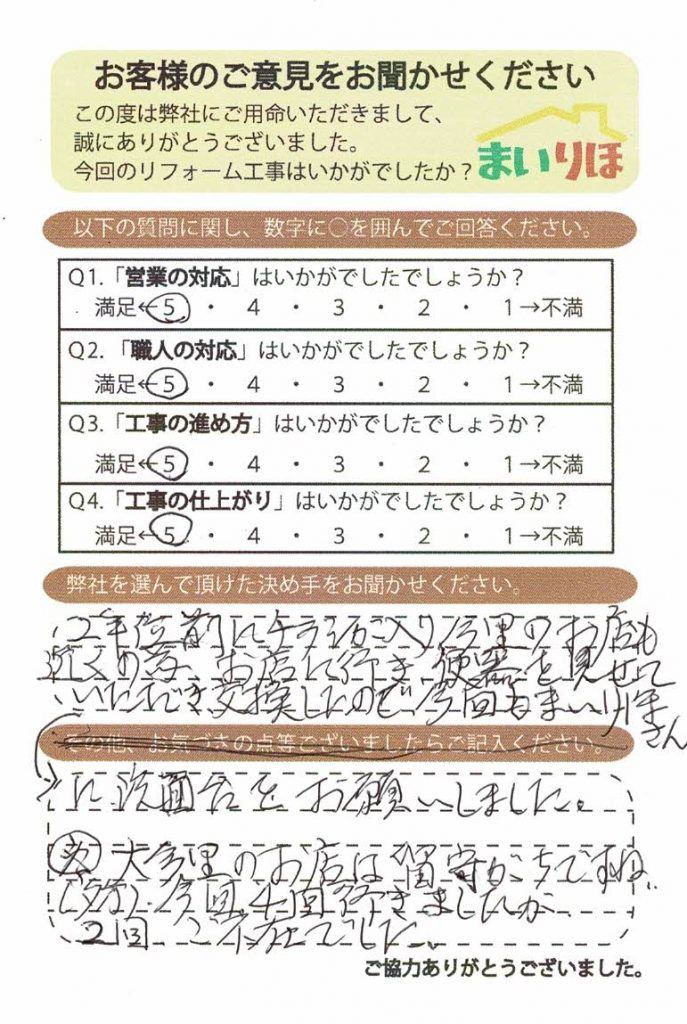 お客様のご意見をお聞かせください
この度は弊社にご用命いただきまして、
誠にありがとうございました。
今回のリフォーム工事はいかがでしたか？
まいりほ
以下の質問に関し、数字に○を囲んでご回答ください。
Q1.「営業の対応」はいかがでしたでしょうか？
満足←5 ・ 4 ・ 3 ・ 2 ・ 1→不満
Q2.「職人の対応」はいかがでしたでしょうか？
満足←5 ・ 4 ・ 3 ・ 2 ・ 1→不満
Q3.「工事の進め方」はいかがでしたでしょうか？
満足←5 ・ 4 ・ 3 ・ 2 ・ 1→不満
Q4.「工事の仕上がり」はいかがでしたでしょうか？
満足←5 ・ 4 ・ 3 ・ 2 ・ 1→不満
弊社を選んで頂けた決め手をお聞かせください。
2年位前にチラシが入り多里のお店も
近くの為 お店に行き 便器を見せて
いただき交換したので今回もまいりほさん
その他、お気づきの点等ございましたらご記入ください。
に洗面台をお願いしました。
大多里のお店は留守がちですね
今回4回行きましたが
2回 ご不在でした。
ご協力ありがとうございました。